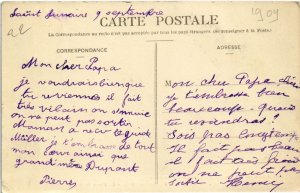 Saint Lunaire 9 septembre
1909
CARTE POSTALE
La correspondance au recto n'est pas acceptée par tous les pays étrangers (Se renseigner à la Poste).
CORRESPONDANCE
ADRESSE
Mon cher Papa
je voudrais bien que
tu reviennes il fait
très vilain on s'ennuie
on ne peut pas sortir
Maman a le
Müller je t'embrasse de tout
mon cœur ainsi que
grand mère Dupont
Pierre
Mon cher Papa
bien
beaucoup quand
tu reviendras?
Sois pas longtemps
Il fait pas beau
il fait très froid
on ne peut pas